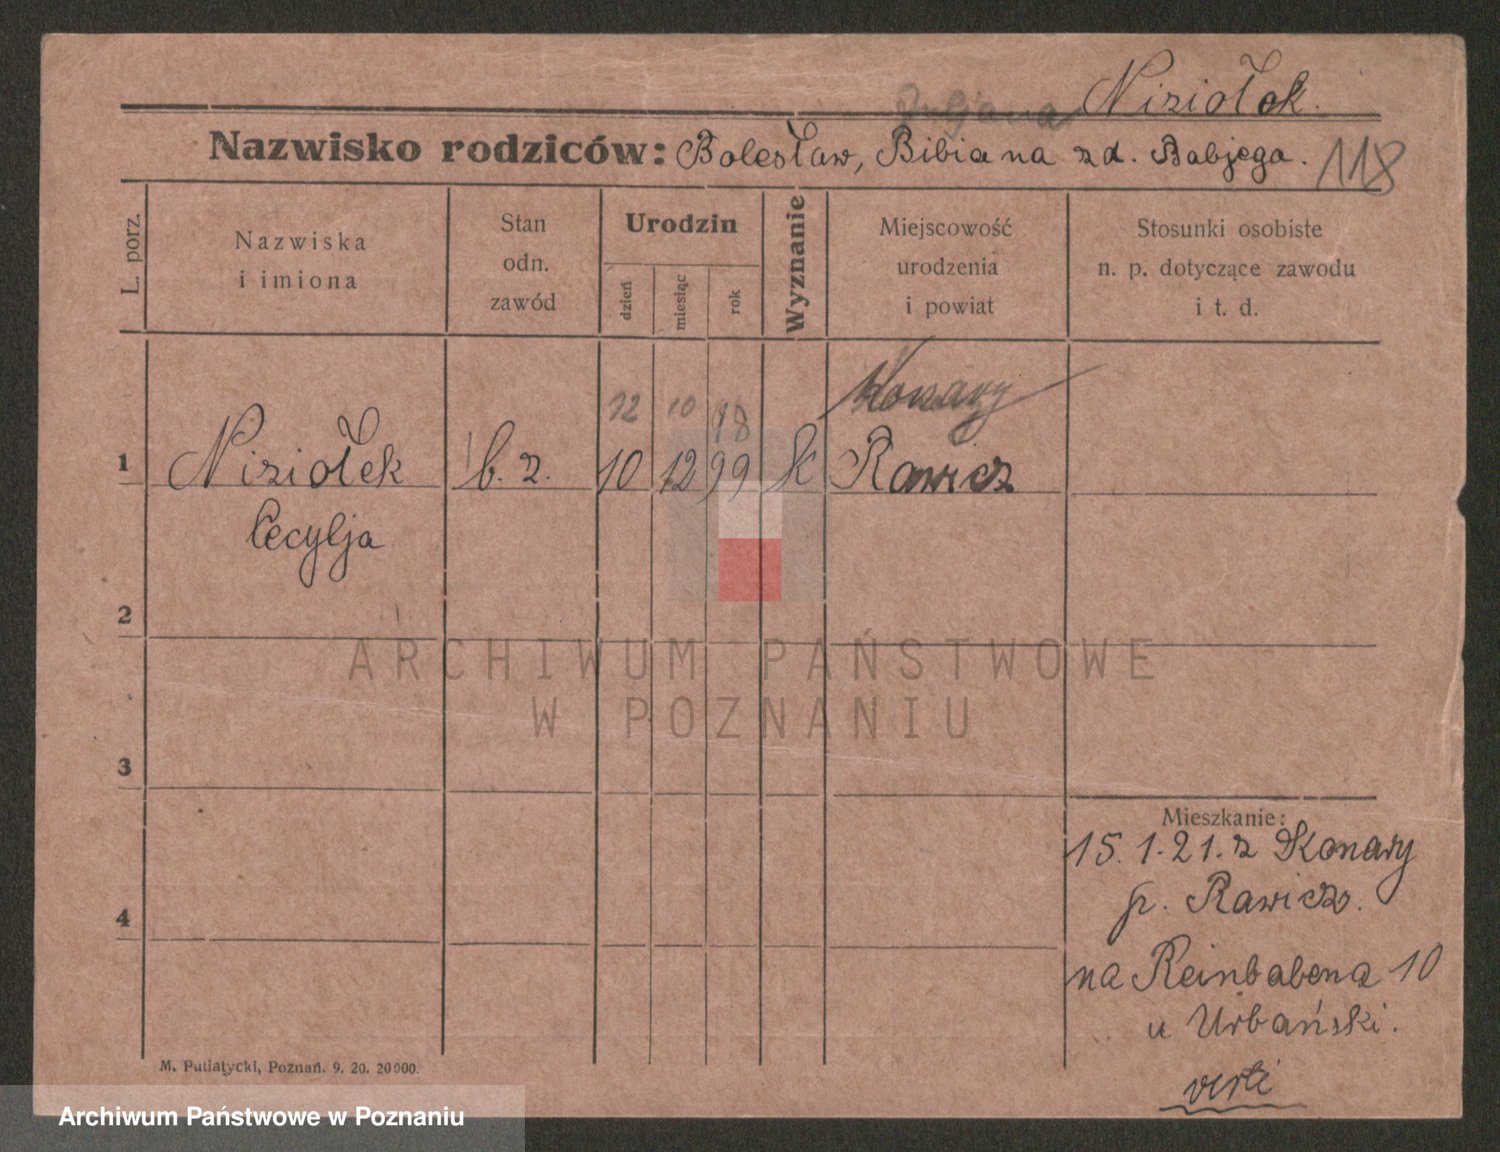 Niziołek.
Nazwisko rodziców: Bolesław, Bibiana zd. Babjega. 118
L. porz.
Nazwiska
i imiona
Stan
odn.
zawód
Urodzin
dzień
miesiąc
rok
Wyznanie
Miejscowość
urodzenia
i powiat
Stosunki osobiste
n. p. dotyczące zawodu
i t. d.
12 10 98 Konary
1 Niziołek b. z. 10 12 99 K Rawicz
Cecylja
2
3
4
Mieszkanie:
15. 1. 21. z Konary
p. Rawicz.
na Reinbabena 10
u Urbański.
verti
M. Putiatycki, Poznań. 9. 20. 20000.
ARCHIWUM PAŃSTWOWE
W POZNANIU
Archiwum Państwowe w Poznaniu